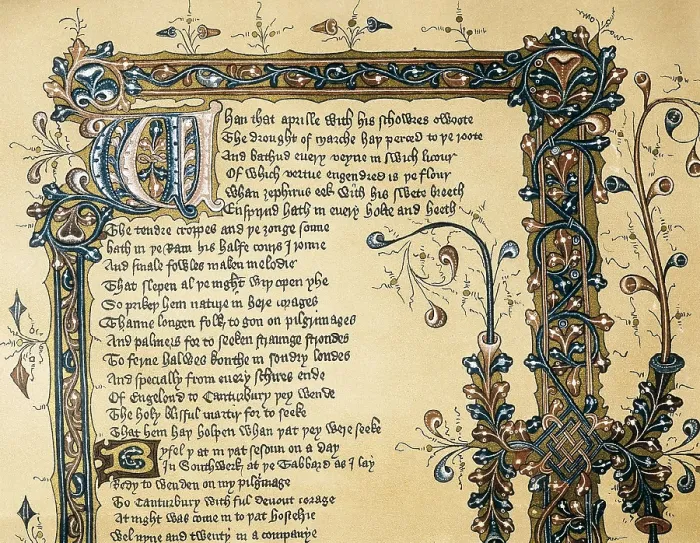 Whan that aprille with his schowres swoote
The drought of marche hay perced to ye roote
And bathud every veyne in swich licour
Of which vertue engendred is ye flour
Whan zephirus eek with his swete breeth
Enspirud hath in every holte and heeth
The tendre croppes and ye zonge sonne
hath in ye Ram his halfe cours I ronne
And smale fowles maken melodie
That slepen al ye night wiþ open yhe
So prikeþ hem nature in here corages
Thanne longen folk to gon on pilgrimages
And palmers for to seeken straunge strondes
To ferne halwes kouthe in sondry londes
And specially from every schires ende
Of Engelond to Canturbury þey wende
The holy blisful martir for to seeke
That hem haþ holpen whan þat þey were seeke
Byfel þat in þat sesoun on a day
In Southwerk at ye Tabbard as I lay
Redy to wenden on my pilgrimage
To Canturbury with ful devout corage
At night was come in to þat hostelrie
Wel nyne and twenty in a companye